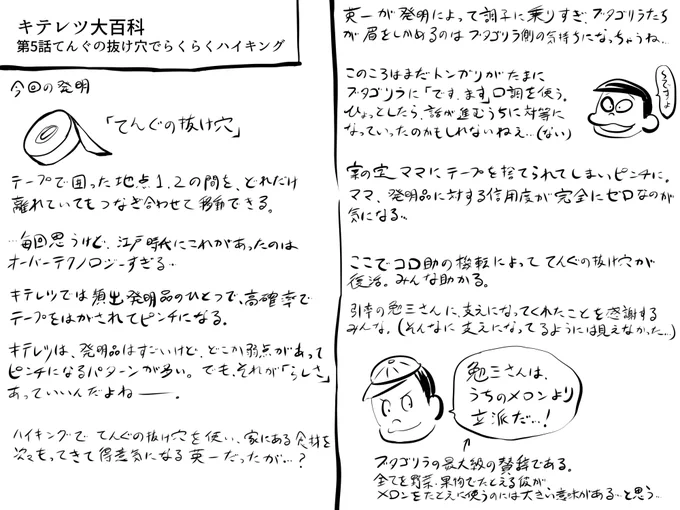 キテレツ大百科
第5話てんぐの抜け穴でらくらくハイキング
今回の発明
「てんぐの抜け穴」
テープで囲った地点1、2の間を、どれだけ
離れていてもつなぎ合わせて移動できる。
…毎回思うけど、江戸時代にこれがあったのは
オーバーテクノロジーすぎる…
キテレツでは頻出発明品のひとつで、高確率で
テープをはがされてピンチになる。
キテレツは、発明品はすごいけど、どこか弱点があって
ピンチになるパターンが多い。でも、それが「らしさ」
あっていいんだよねー。
ハイキングで てんぐの抜け穴を使い、家にある食材を
次々もってきて得意気になる英一だったが…?
英一が発明によって調子に乗りすぎ、ブタゴリラたち
が眉をしかめるのはブタゴリラ側の気持ちになっちゃうね…
このころはまだトンガリがたまに
ブタゴリラに「です、ます」口調を使う。
ひょっとしたら、話が進むうちに対等に
なっていったのかもしれないねぇ…(ない)
〜ですよ
案の定 ママにテープを捨てられてしまいピンチに。
ママ、発明品に対する信用度が完全にゼロなのが
気になる…
ここでコロ助の機転によって てんぐの抜け穴が
復活。みんな助かる。
引率の勉三さんに、支えになってくれたことを感謝する
みんな。(そんなに支えになってるようには見えなかった…)
勉三さんは、
うちのメロンより
立派だ…!
ブタゴリラの最大級の賛辞である。
全てを野菜・果物でたとえる彼が
メロンをたとえに使うのには大きい意味がある…と思う…